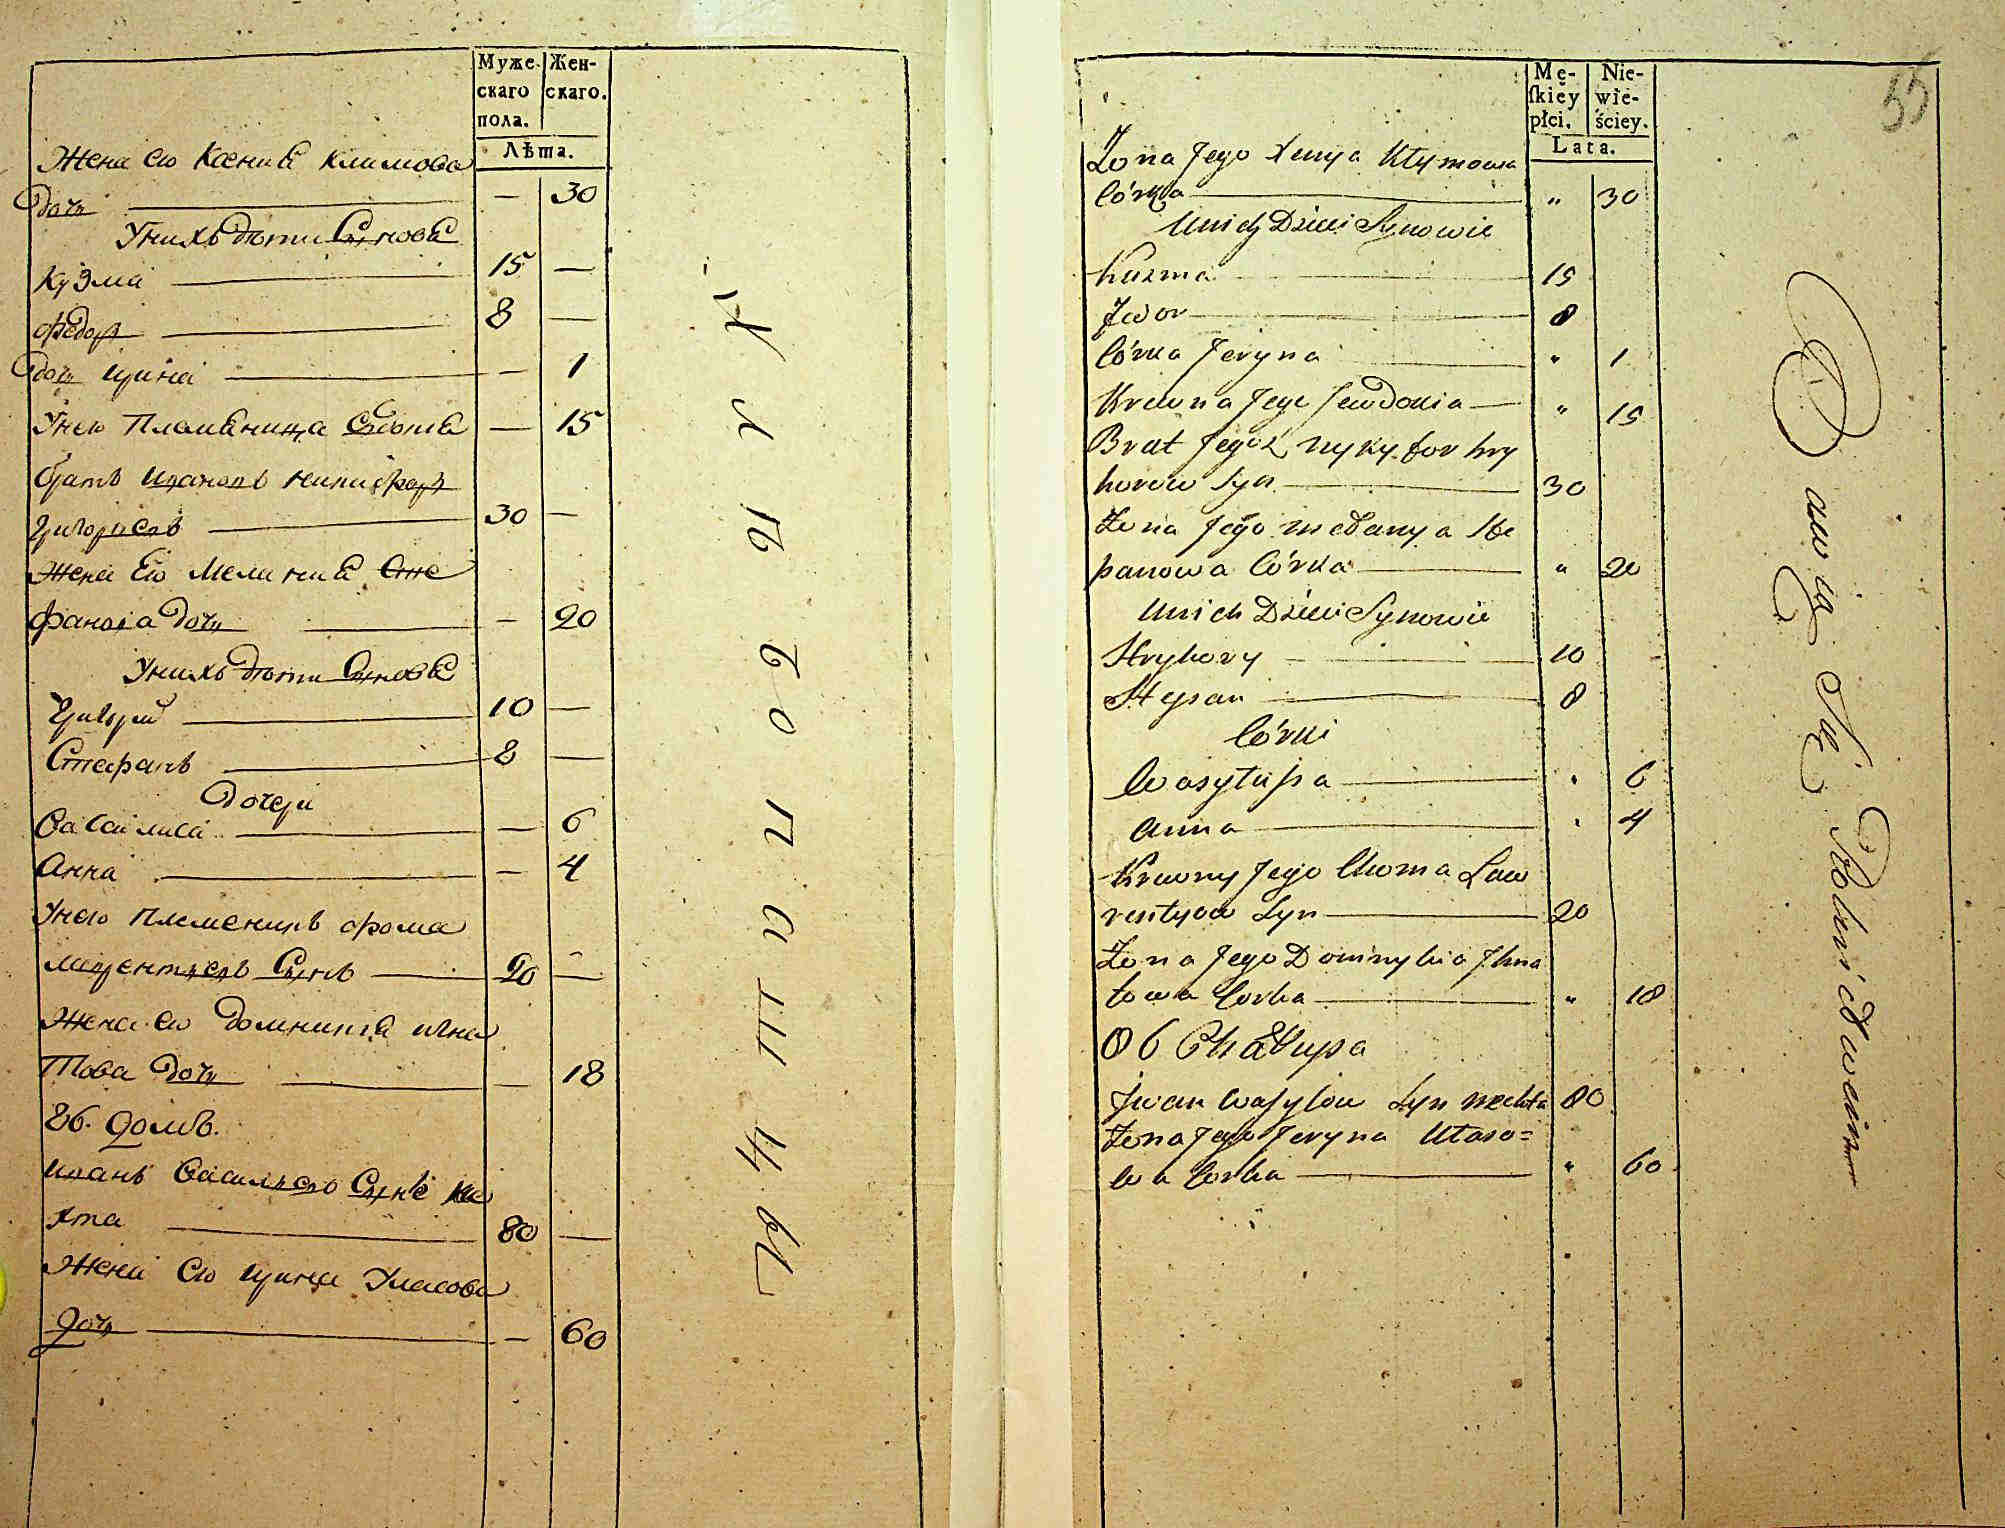 Муже-
скаго
пола.
Жен-
скаго.
Лѣта.
Жена его Ксениѧ Климова
дочь — 30
У нихъ дѣти Сынова
Кузма 15 —
Федоръ 8 —
дочь Ирина — 1
У него Племѧница — 15
братъ Ивановъ Никифоръ
Григориевъ 30 —
Жена Его Меланиѧ Сте
фанова дочь — 20
У нихъ дѣти Сыновѧ
Григорий 10 —
Стефанъ 8 —
дочери
Василиса — 6
Анна — 4
У него племеникъ фома
Сынъ 20 —
Жена его Домникиѧ Игна
това дочь — 18
86. домъ.
Иванъ Васильевъ Сынъ Не
хта 80 —
Жена Его Ирина Уласова
дочь — 60
Mę-
ſkiey
płci.
Nie-
wie-
ściey.
Lata.
55
Zona Jego Xenya Kłymowa
Córka " 30
U nich Dzieci Synowie
Kuzma 15
Fedor 8
Córka Jeryna " 1
Krewna Jego Jewdokia " 15
Brat Jegoż Nykyfor Hry
horow Syn 30
Zona Jego Mełanya Ste
panowa Córka " 20
U nich Dzieci Synowie
Hryhory 10
Stepan 8
Córki
Wasyłyſsa " 6
Anna " 4
Krewny Jego Choma Law
rentyow Syn 20
Zona Jego Dominykia Ihna
towa Corka " 18
86 Chałupa
Jwan Waſylow Syn Nechta 80
Zona Jego Jeryna Ułaso=
wa Corka " 60